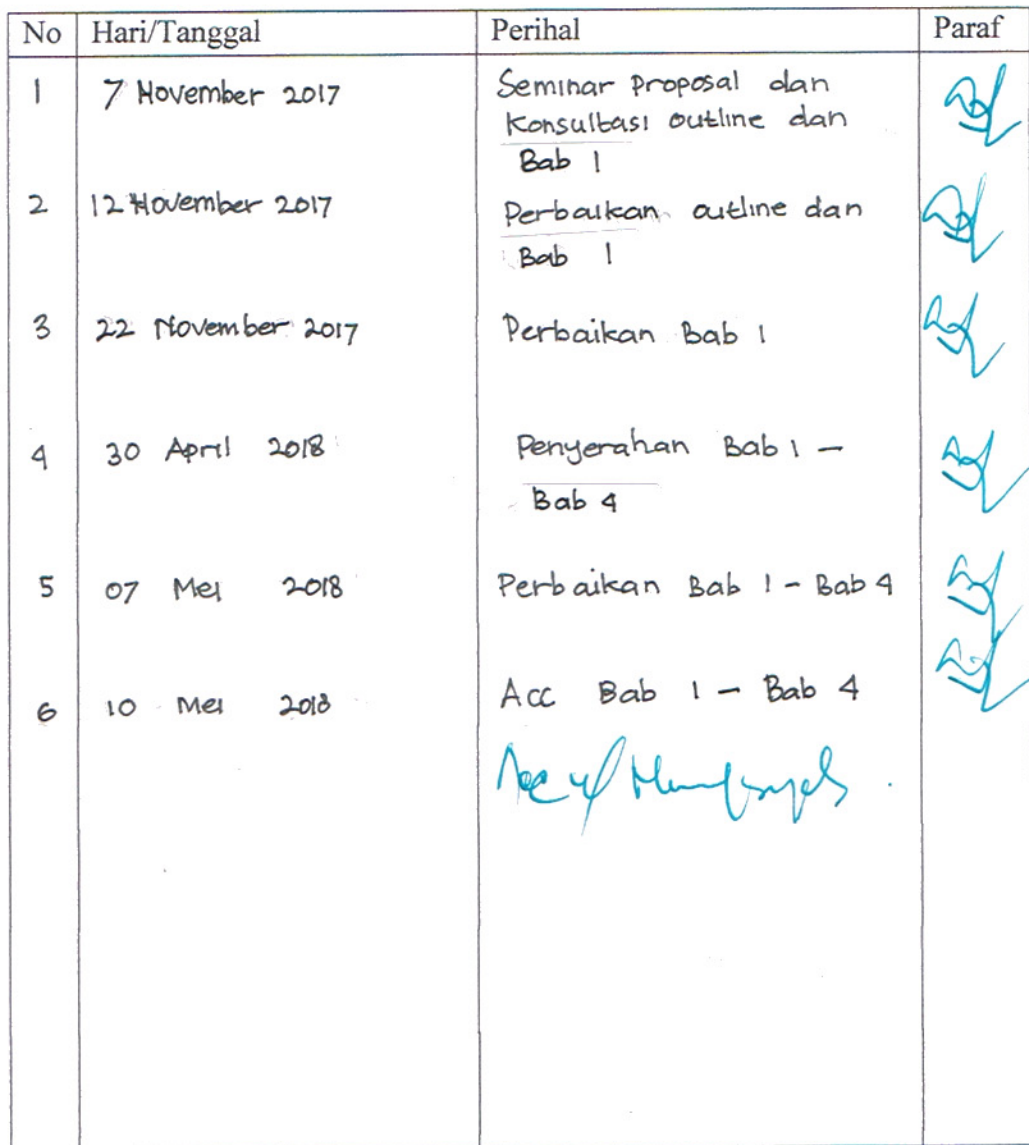 No Hari/Tanggal Perihal Paraf
1 7 November 2017 Seminar Proposal dan
Konsultasi outline dan
Bab 1
2 12 November 2017 Perbaikan outline dan
Bab 1
3 22 November 2017 Perbaikan Bab 1
4 30 April 2018 Penyerahan Bab 1 –
Bab 4
5 07 Mei 2018 Perbaikan Bab 1 – Bab 4
6 10 Mei 2018 Acc Bab 1 – Bab 4